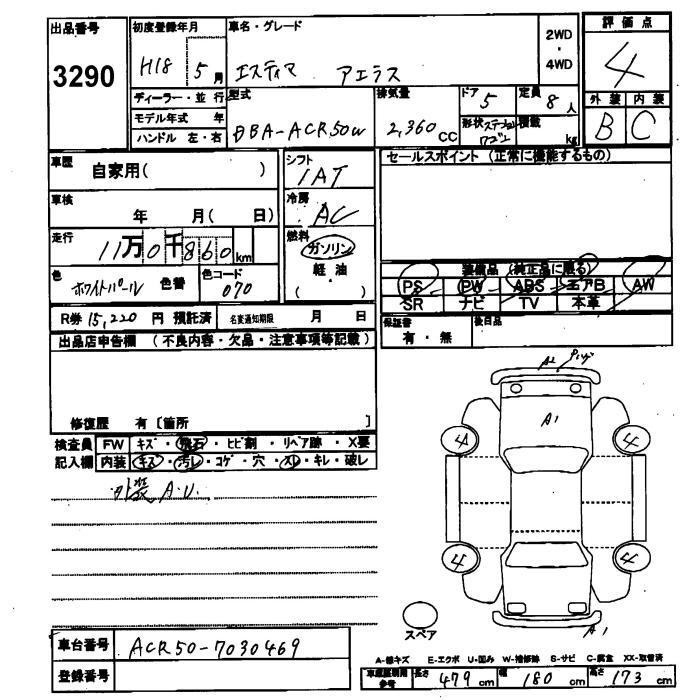 出品番号 初度登録年月 車名・グレード 2WD・4WD 評価点
3290 H18 5月 エスティマ アエラス 4
ディーラー・並行 型式 排気量 ドア 5 定員 8人 外装 内装
モデル年式 年 DBA-ACR50W 2,360 CC 形状 ステーションワゴン 積載 kg B C
ハンドル 左・右
車歴 自家用( ) シフト IAT セールスポイント (正常に機能するもの)
車検 年 月( 日) 冷房 AC
走行 11万0千860km 燃料 ガソリン 軽・油 ( )
装備品 (純正品に限る)
PS PW ABS エアB AW
SR ナビ TV 本革
色 ホワイトパール 色替 色コード 070
R券 15,220 円 預託済 名変通知期限 月 日 保証書 有・無 後日品
出品店申告欄 (不良内容・欠品・注意事項等記載)
修復歴 有〔箇所 〕
検査員 FW キズ・飛石・ヒビ割・リペア跡・X要
記入欄 内装 キズ・汚レ・コゲ・穴・スレ・キレ・破レ
外装 A.U.
A2
A1
4 4
4 4
スペア
A1
車台番号 ACR50-7030469
登録番号
A-線キズ E-エクボ U-凹み W-補修跡 S-サビ C-腐食 XX-取替済
参考 長さ 479 cm 幅 180 cm 高さ 173 cm